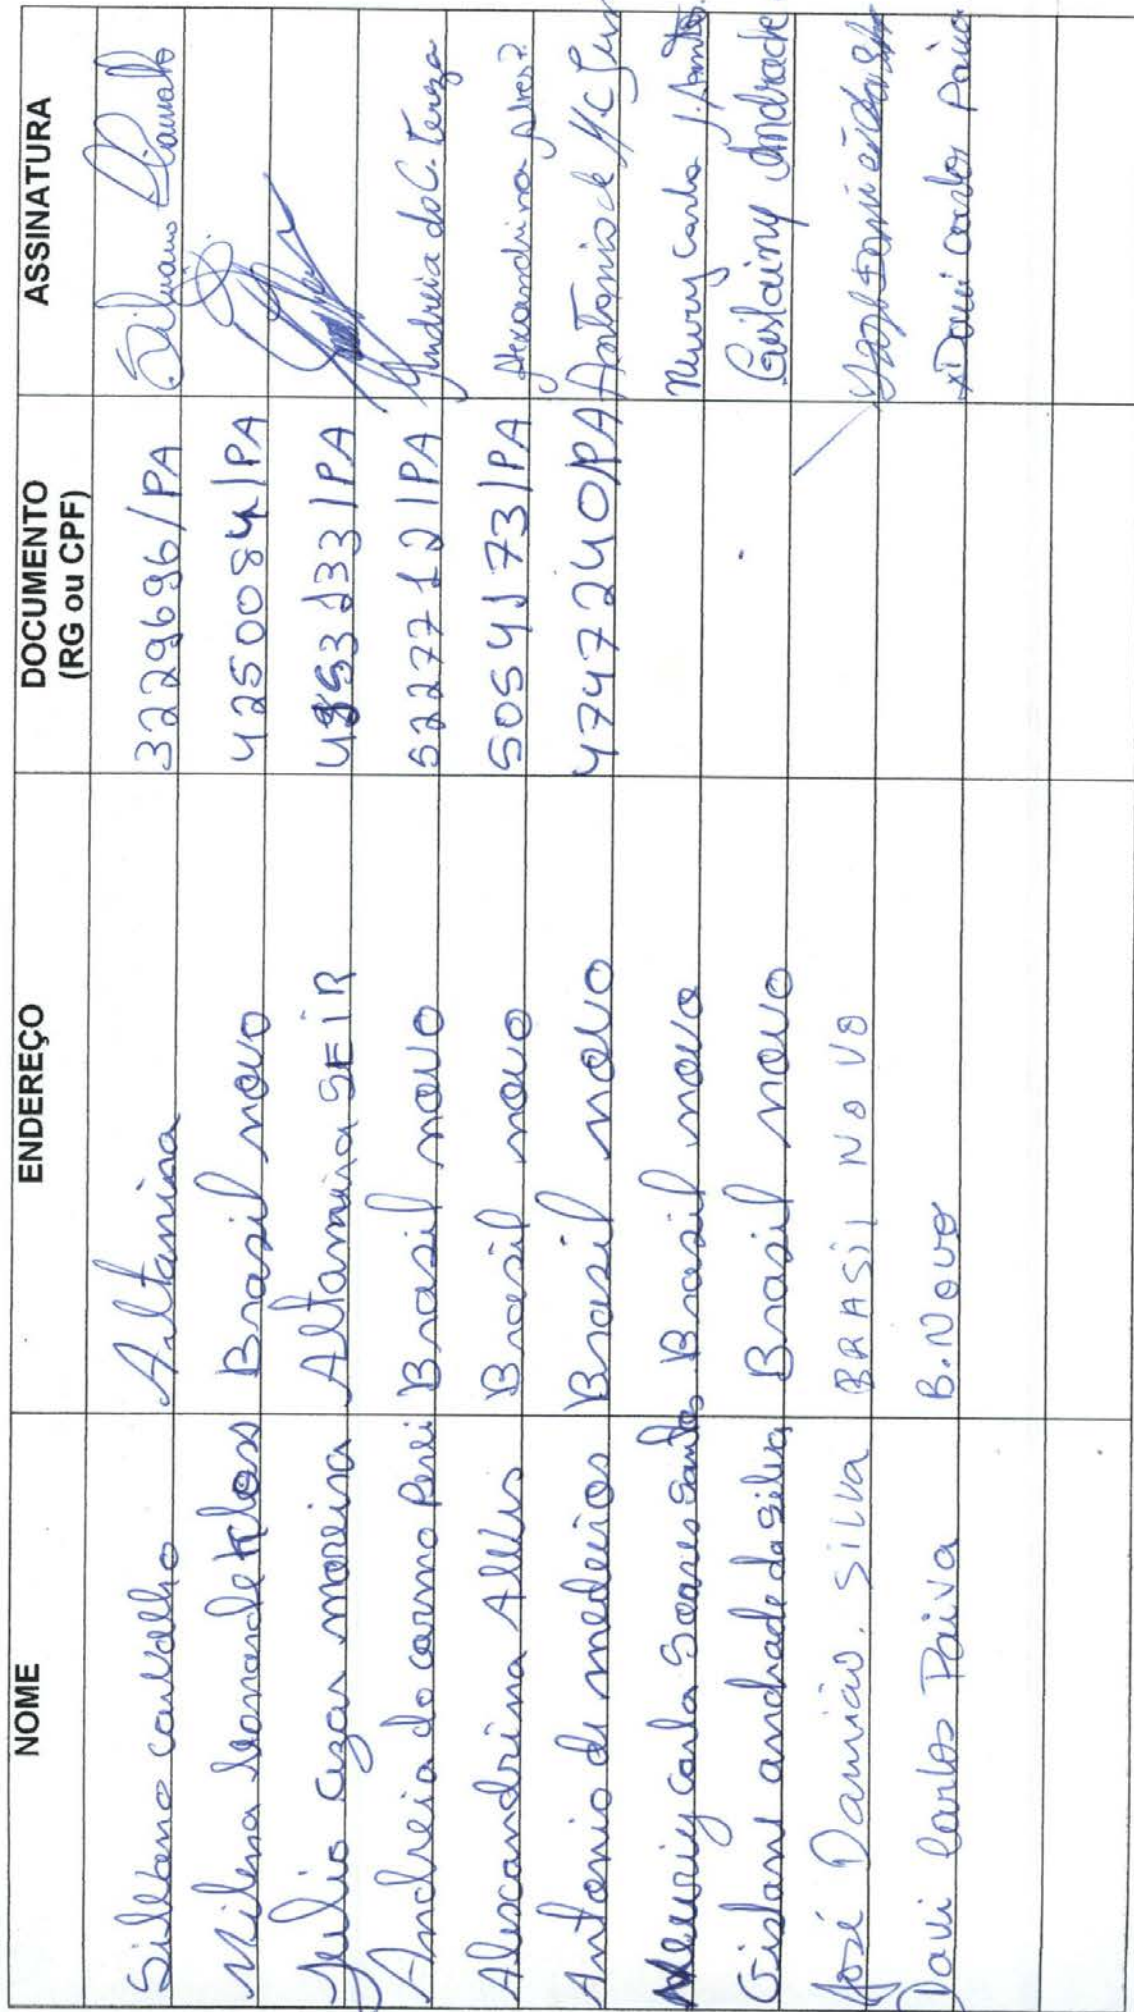 NOME ENDEREÇO DOCUMENTO (RG ou CPF) ASSINATURA
Silvano carvalho Altamira 3229696/PA Silvano Carvalho
Milena Kloss Brasil novo 4250084/PA
Julio cezar moreira Altamira SEIR 4853133/PA
Andreia do carmo Perei Brasil novo 5227712/PA Andreia do C.
Alexandrina Alves Brasil novo 5054173/PA Alexandrina Alves
Antonio de medeiros Brasil novo 4747240/PA Antonio de M. C.
Meuriy Carla Soares Santos Brasil novo Meury Carla S. Santos
Gislane andrade da Silva Brasil novo Gislainy Andrade
José Damião. SILVA BRASIL NOVO
Davi Carlos Paiva B. Novo x Davi Carlos Paiva